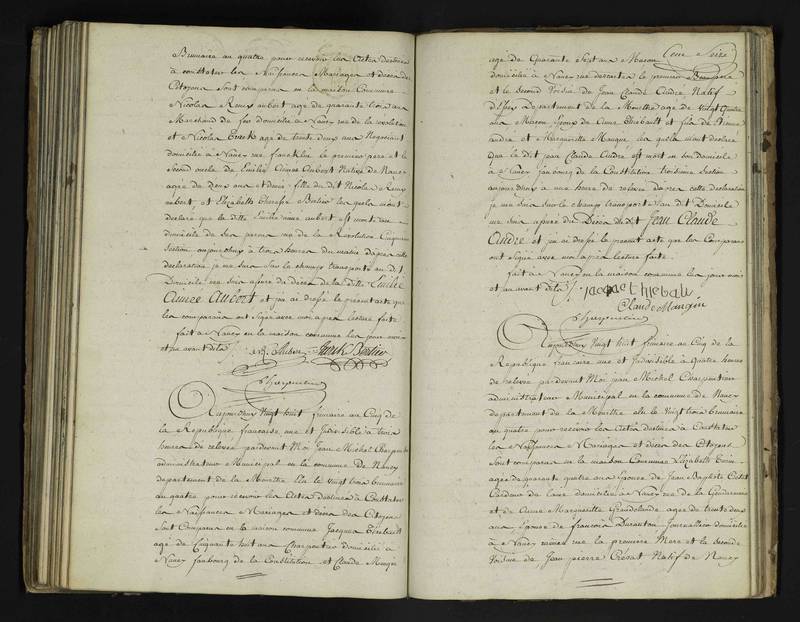 Brumaire an quatre pour recevoir les actes destinés
à constater les Naissances Mariages et décès des
Citoyens Sont comparus en la maison Commune
Nicolas Remy aubert agé de quarante trois ans
Marchand de fer domicilié à Nancy rue de la révolution
et Nicolas agé de trente deux ans Negociant
domicilié à Nancy rue franklin le premier pere et le
Second oncle de Emilie Aimée Aubert Native de Nancy
agée de deux ans et demie fille du dit Nicolas Remy
aubert, et Elizabeth Therese Berlier les quels m'ont
déclaré que la ditte Emilie aimée aubert est morte au
domicile de ses peres rue de la Révolution Cinquieme
Section aujourdhuy à trois heures du matin d'apres cette
déclaration je me suis Sur le champ transporté au dit
Domicile me suis assuré du décès de la ditte Emilie
Aimée Aubert et j'ai dressé le présent acte que
les comparans ont Signé avec moi apres lecture faite
fait à Nancy en la maison commune les jour mois
et an avant dits Berlier
Charpentier
Aujourdhuy Vingt huit frimaire an Cinq de
la Republique française une et Indivisible à trois
heures de relevée pardevant Moi Jean Michel Charpentier
administrateur Municipal en la commune de Nancy
département de la Meurthe élu le Vingt trois Brumaire
an quatre pour recevoir les actes destinés à Constater
les Naissances Mariages et décès des Citoyens
Sont Comparus en la maison commune Jacques Thiebault
agé de Cinquante huit ans Charpentier domicilié à
Nancy faubourg de la Constitution et Claude Mangin
agé de Quarante Sept ans Macon
domicilié à Nancy rue descartes le premier Beaupere
et le Second Voisin de Jean Claude André Natif
Département de la Meurthe agé de Vingt Quatre
ans Macon Epoux de Anne Thiebault et fils de Etienne
andré et Marguerite Mangin les quels m'ont déclaré
que le dit jean Claude André est mort en son domicile
à Nancy faubourg de la Constitution troisieme Section
aujourdhuy à une heure de relevée d'apres cette déclaration
je me suis Sur le champ transporté au dit Domicile
me suis assuré du Décès du dit Jean Claude
André et j'ai dressé le present acte que les Comparans
ont Signé avec moi apres lecture faite
fait à Nancy en la maison commune les jour mois
et an avant dits jacque thiebau
Claude Mangin
Charpentier
Aujourdhuy Vingt huit frimaire an Cinq de la
Republique française une et Indivisible à Quatre heures
de relevée pardevant Moi jean Michel Charpentier
administrateur Municipal en la commune de Nancy
département de la Meurthe élu le Vingt trois brumaire
an quatre pour recevoir les Actes destinés à Constater
les Naissances Mariages et décès des Citoyens
Sont comparus en la maison Commune Elizabeth
agée de quarante quatre ans Epouse de Jean Baptiste
Cardeur de laine domicilié à Nancy rue de la
et de Anne Marguerite agée de trente deux
ans Epouse de françois Journallier domicilié
à Nancy meme rue la premiere Mere et la Seconde
Voisine de Jean pierre Natif de Nancy